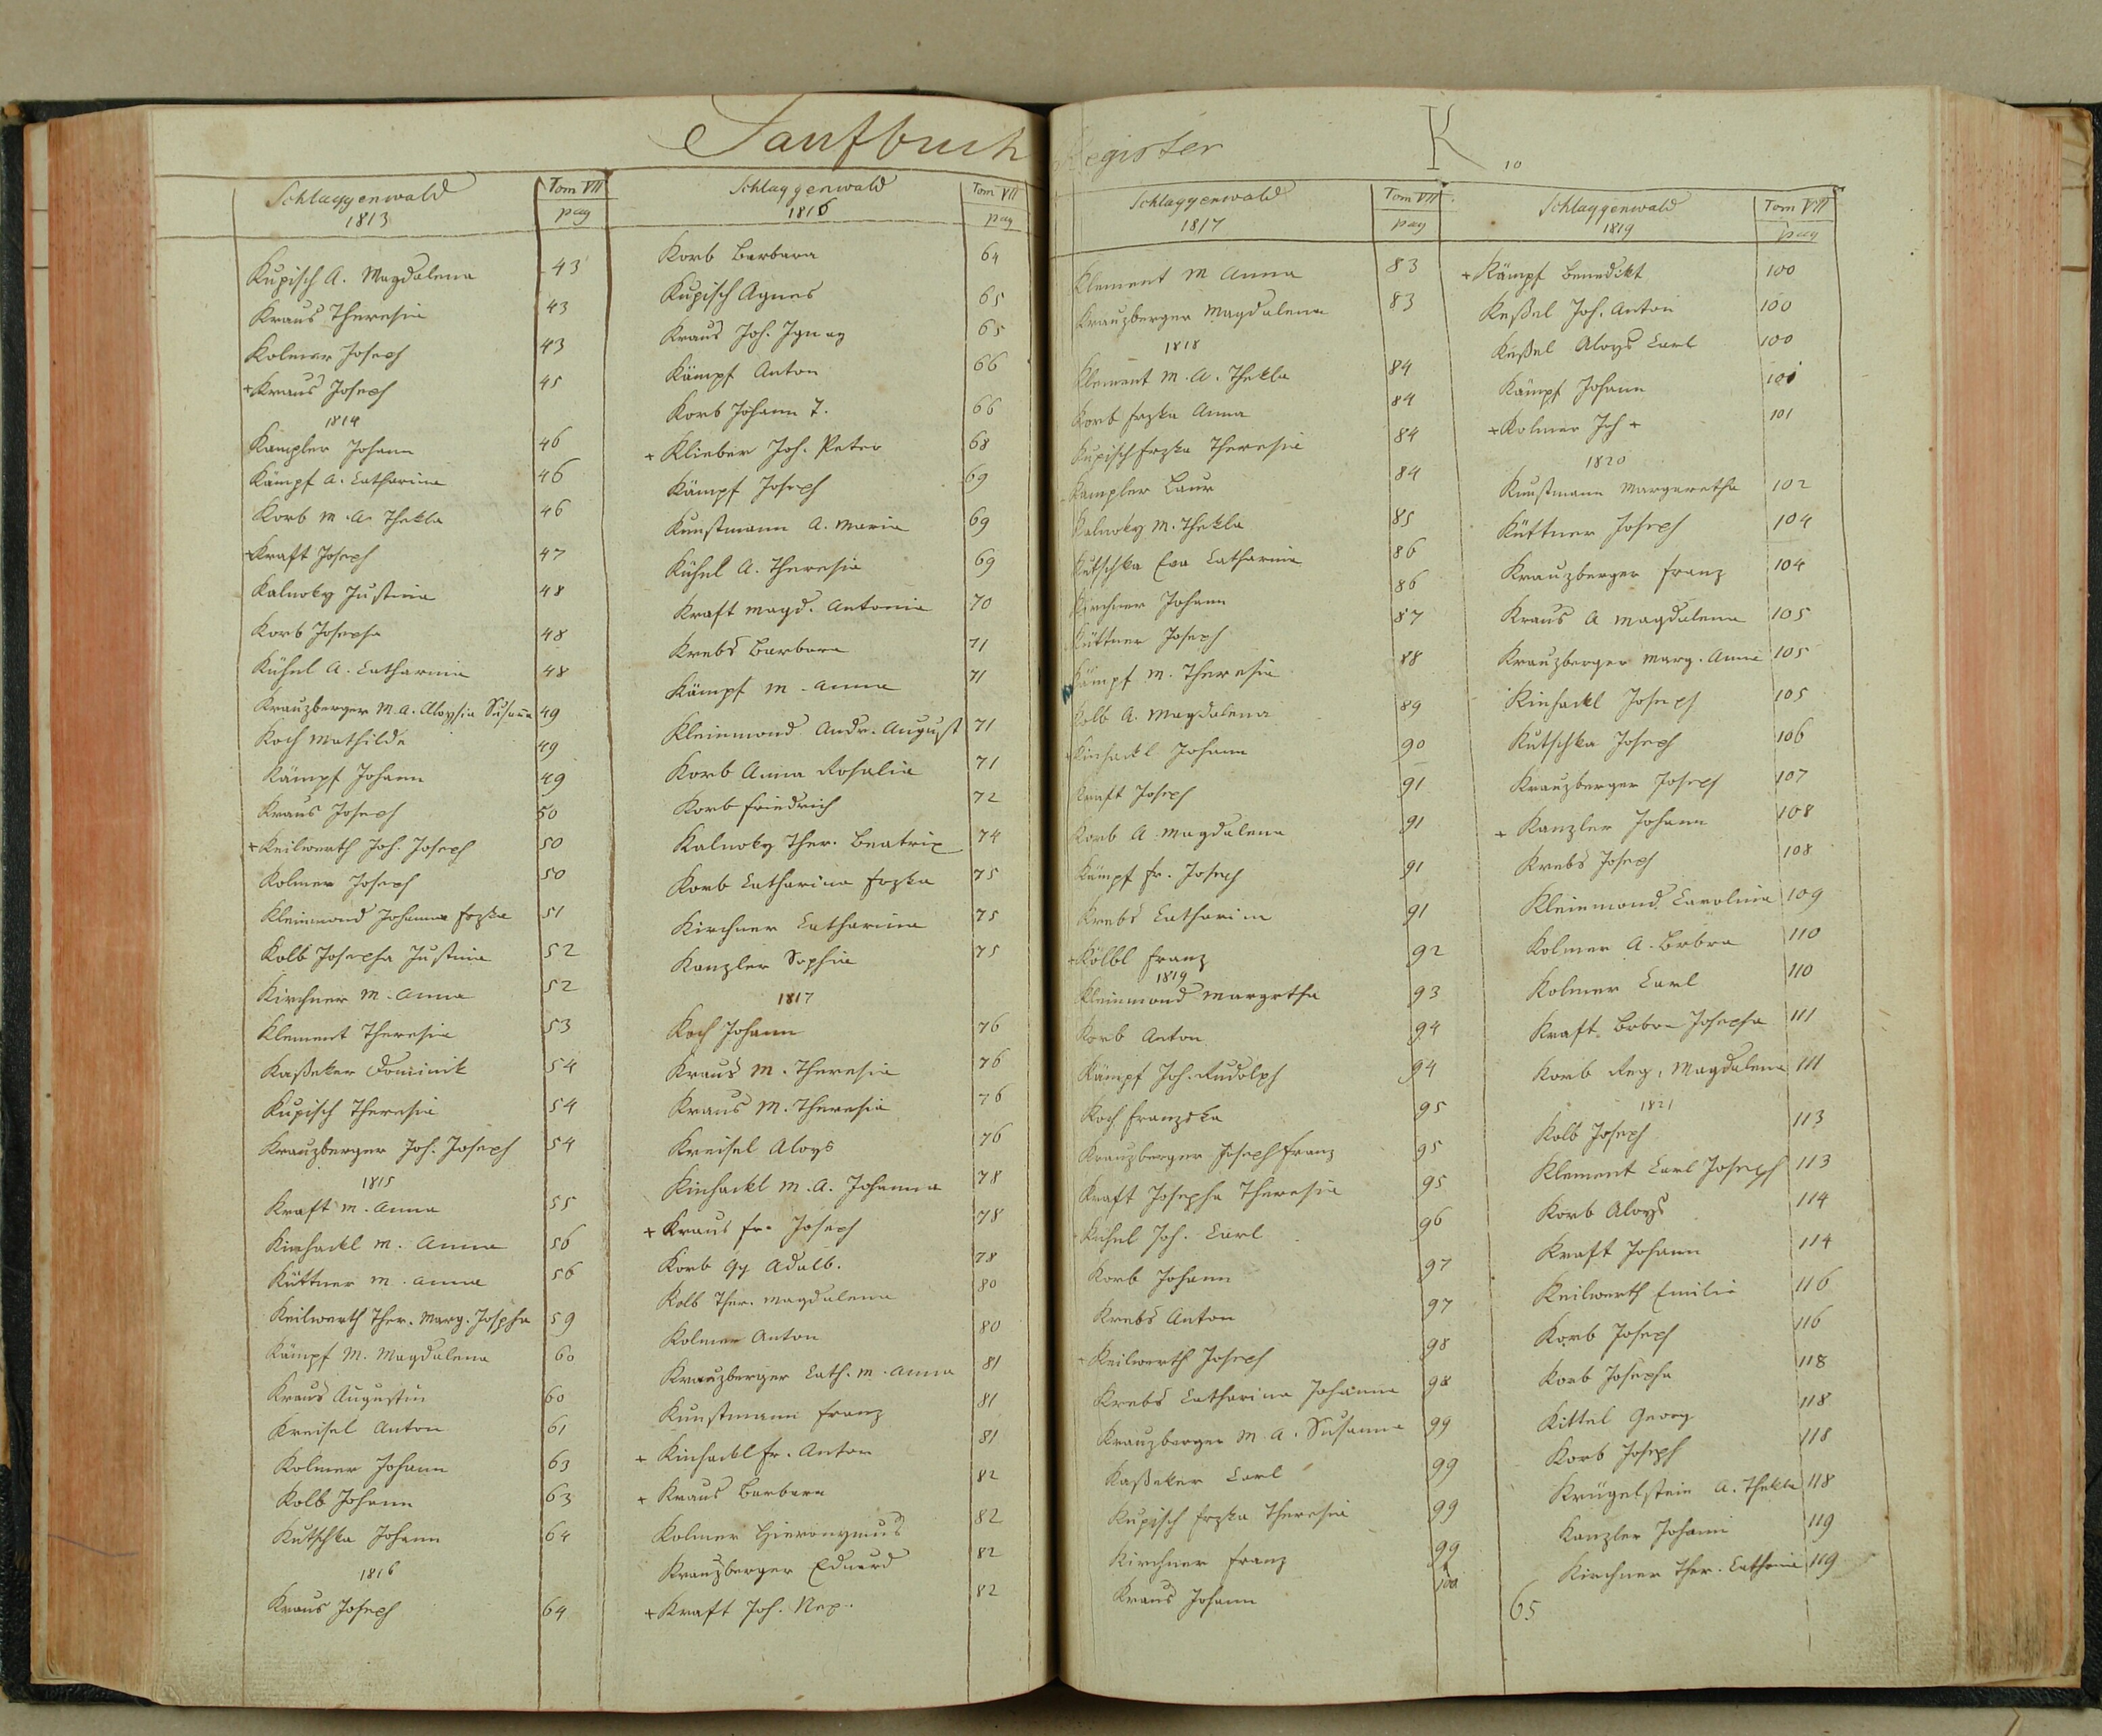 Taufbuch Register K 10
Schlaggenwald Tom VII
1813 pag
Kupisch A. Magdalena 43
Kraus Theresia 43
Kolmer Joseph 43
+Kraus Joseph 45
1814
Kampler Johann 46
Kämpf A. Catharina 46
Korb M. A. Thekla 46
+Kraft Joseph 47
Kalnoky Justina 48
Korb Josepha 48
Kühnl A. Catharina 48
Krauzberger M. A. Aloysia Susana 49
Koch Mathilde 49
Kämpf Johann 49
Kraus Joseph 50
+Keilwerth Joh. Joseph 50
Kolmer Joseph 50
Kleinmond Johanna Frzka 51
Kolb Josepha Justina 52
Kirchner M. Anna 52
Klement Theresia 53
Kaßeker Dominik 54
Kupisch Theresia 54
Krauzberger Joh. Joseph 54
1815
Kraft M. Anna 55
Kinhackl M. Anna 56
Küttner M. Anna 56
Keilwerth Ther. Marg. Jospha 59
Kämpf M. Magdalena 60
Kraus Augustin 60
Kreisel Anton 61
Kolmer Johann 63
Kolb Johann 63
Kutschka Johann 64
1816
Kraus Joseph 64
Schlaggenwald Tom VII
1816 pag
Korb Barbara 64
Kupisch Agnes 65
Kraus Joh. Ignaz 65
Kämpf Anton 66
Korb Johann T. 66
+ Klieber Joh. Peter 68
Kämpf Joseph 69
Kunstmann A. Maria 69
Kühnl A. Theresia 69
Kraft Magd. Antonia 70
Krebs Barbara 71
Kämpf M. Anna 71
Kleinmond Andr. August 71
Korb Anna Rosalia 71
Korb Friedrich 72
Kalnoky Ther. Beatrix 74
Korb Catharina Frzka 75
Kirchner Catharina 75
Kanzler Sophia 75
1817
Koch Johann 76
Kraus M. Theresia 76
Kraus M. Theresia 76
Kreisel Aloys 76
Kinhackl M. A. Johanna 78
+ Kraus Fr. Joseph 78
Korb Adalb. 78
Kolb Ther. Magdalena 80
Kolmer Anton 80
Krauzberger Cath. M. Anna 81
Kunstmann Franz 81
+ Kinhackl Fr. Anton 81
+ Kraus Barbara 82
Kolmer Hieronymus 82
Krauzberger Eduard 82
+ Kraft Joh. Nep. 82
Schlaggenwald Tom VII
1817 pag
Klement M Anna 83
Krauzberger Magdalena 83
1818
Klement M. A. Thekla 84
Korb Frzka Anna 84
Kupisch Frzka Theresia 84
Kampler Laur 84
Kalnoky M. Thekla 85
Kutschka Eva Catharina 86
Kirchner Johann 86
Küttner Joseph 87
Kämpf M. Theresia 88
Kolb A. Magdalena 89
Kinhackl Johann 90
Kraft Joseph 91
Korb A. Magdalena 91
Kämpf Fr. Joseph 91
Krebs Catharina 91
+Kölbl Franz 92
1819
Kleinmond Margretha 93
Korb Anton 94
Kämpf Joh. Rudolph 94
Koch Franziska 95
Krauzberger Joseph Franz 95
Kraft Josepha Theresia 95
Kühnl Joh. Carl 96
Korb Johann 97
Krebs Anton 97
+Keilwerth Joseph 98
Krebs Catharina Johanna 98
Krauzberger M. A. Susanna 99
Kaßeker Carl 99
Kupisch Frzka Theresia 99
Kirchner Franz 99
Kraus Johann 100
Schlaggenwald Tom VII
1819 pag
+ Kämpf Benedikt 100
Keßel Joh. Anton 100
Keßel Aloys Carl 100
Kämpf Johann 101
+Kolmer Joh + 101
1820
Kunstmann Margaretha 102
Küttner Joseph 104
Krauzberger Franz 104
Kraus A Magdalena 105
Krauzberger Marg. Anna 105
Kinhackl Joseph 105
Kutschka Joseph 106
Krauzberger Joseph 107
+ Kanzler Johann 108
Krebs Joseph 108
Kleinmond Carolina 109
Kolmer A. Brbra 110
Kolmer Carl 110
Kraft Brbra Josepha 111
Korb Reg. Magdalena 111
1821
Kolb Joseph 113
Klement Carl Joseph 113
Korb Aloys 114
Kraft Johann 114
Keilwerth Emilie 116
Korb Joseph 116
Korb Josepha 118
Kittel Georg 118
Korb Joseph 118
Krügelstein A. Thekla 118
Kanzler Johann 119
Kirchner Ther. Cathrina 119
65